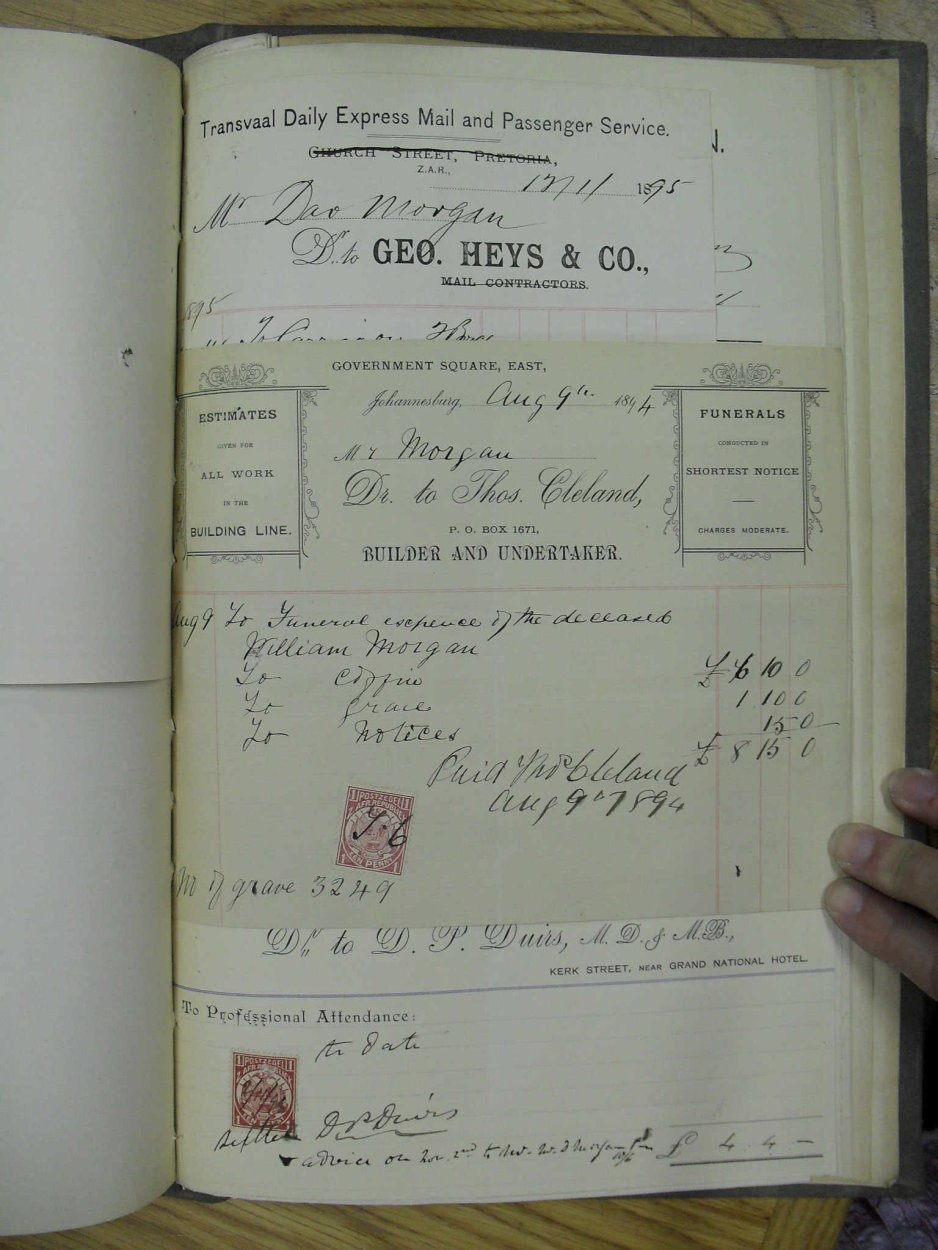 Transvaal Daily Express Mail and Passenger Service.
CHURCH STREET, PRETORIA,
Z.A.R.,
1895
Mr Dav Morgan
Dr. to GEO. HEYS & CO.,
MAIL CONTRACTORS.
1895
GOVERNMENT SQUARE, EAST,
Johannesburg, Aug 9th 1894
Mr Morgan
Dr. to Thos. Cleland,
P. O. BOX 1671,
BUILDER AND UNDERTAKER.
ESTIMATES
GIVEN FOR
ALL WORK
IN THE
BUILDING LINE.
FUNERALS
CONDUCTED IN
SHORTEST NOTICE
CHARGES MODERATE.
Aug 9 To Funeral expence of the deceased
William Morgan
To coffin £ 6 10 0
To grave 1 10 0
To Notices 15 0
£ 8 15 0
Paid Thos Cleland
Aug 9th 1894
1 POSTZEGEL 1
Z. AFR. REPUBLIEK
T.C
1 EEN PENNY 1
No of grave 3249
Dr. to D. P. Duirs, M. D. & M.B.,
KERK STREET, NEAR GRAND NATIONAL HOTEL.
To Professional Attendance:
to date
1 POSTZEGEL 1
EEN PENNY
D P Duirs
advice on Nov. 2nd to Mr. W. D Morgan £ 4 4 -